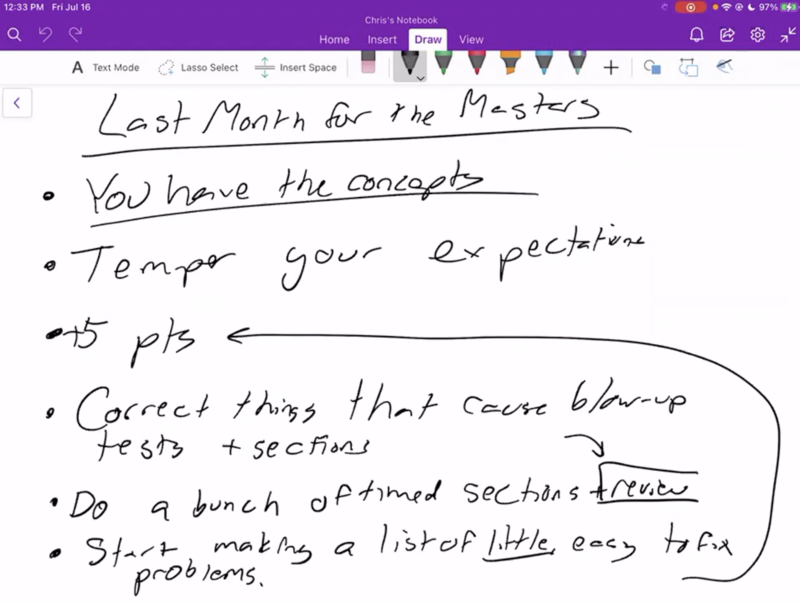 12:33 PM Fri Jul 16
97%
Chris's Notebook
Home Insert Draw View
A Text Mode Lasso Select Insert Space
Last Month for the Masters
• You have the concepts
• Temper your expectations
• +5 pts
• Correct things that cause blow-up
tests + sections
• Do a bunch of timed sections + review
• Start making a list of little, easy to fix
problems.